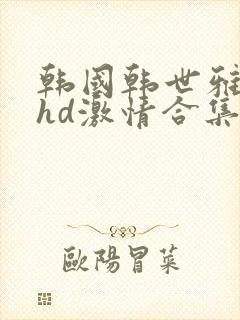 韩国韩世雅
hd激情合集
歐陽冒菜